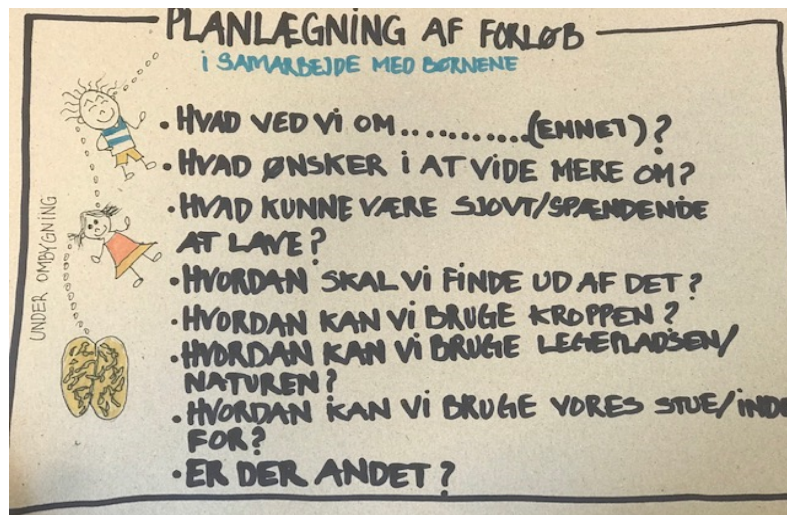 PLANLÆGNING AF FORLØB
i SAMARBEJDE MED BØRNENE
• HVAD VED Vi OM...........(EMNET)?
• HVAD ØNSKER i AT ViDE MERE OM?
• HVAD KUNNE VÆRE SJOVT/SPÆNDENDE
AT LAVE?
• HVORDAN SKAL Vi FiNDE UD AF DET?
• HVORDAN KAN Vi BRUGE KROPPEN?
• HVORDAN KAN Vi BRUGE LEGEPLADSEN/
NATUREN?
• HVORDAN KAN Vi BRUGE VORES STUE/iNDE
FOR?
• ER DER ANDET?
UNDER OMBYGNING